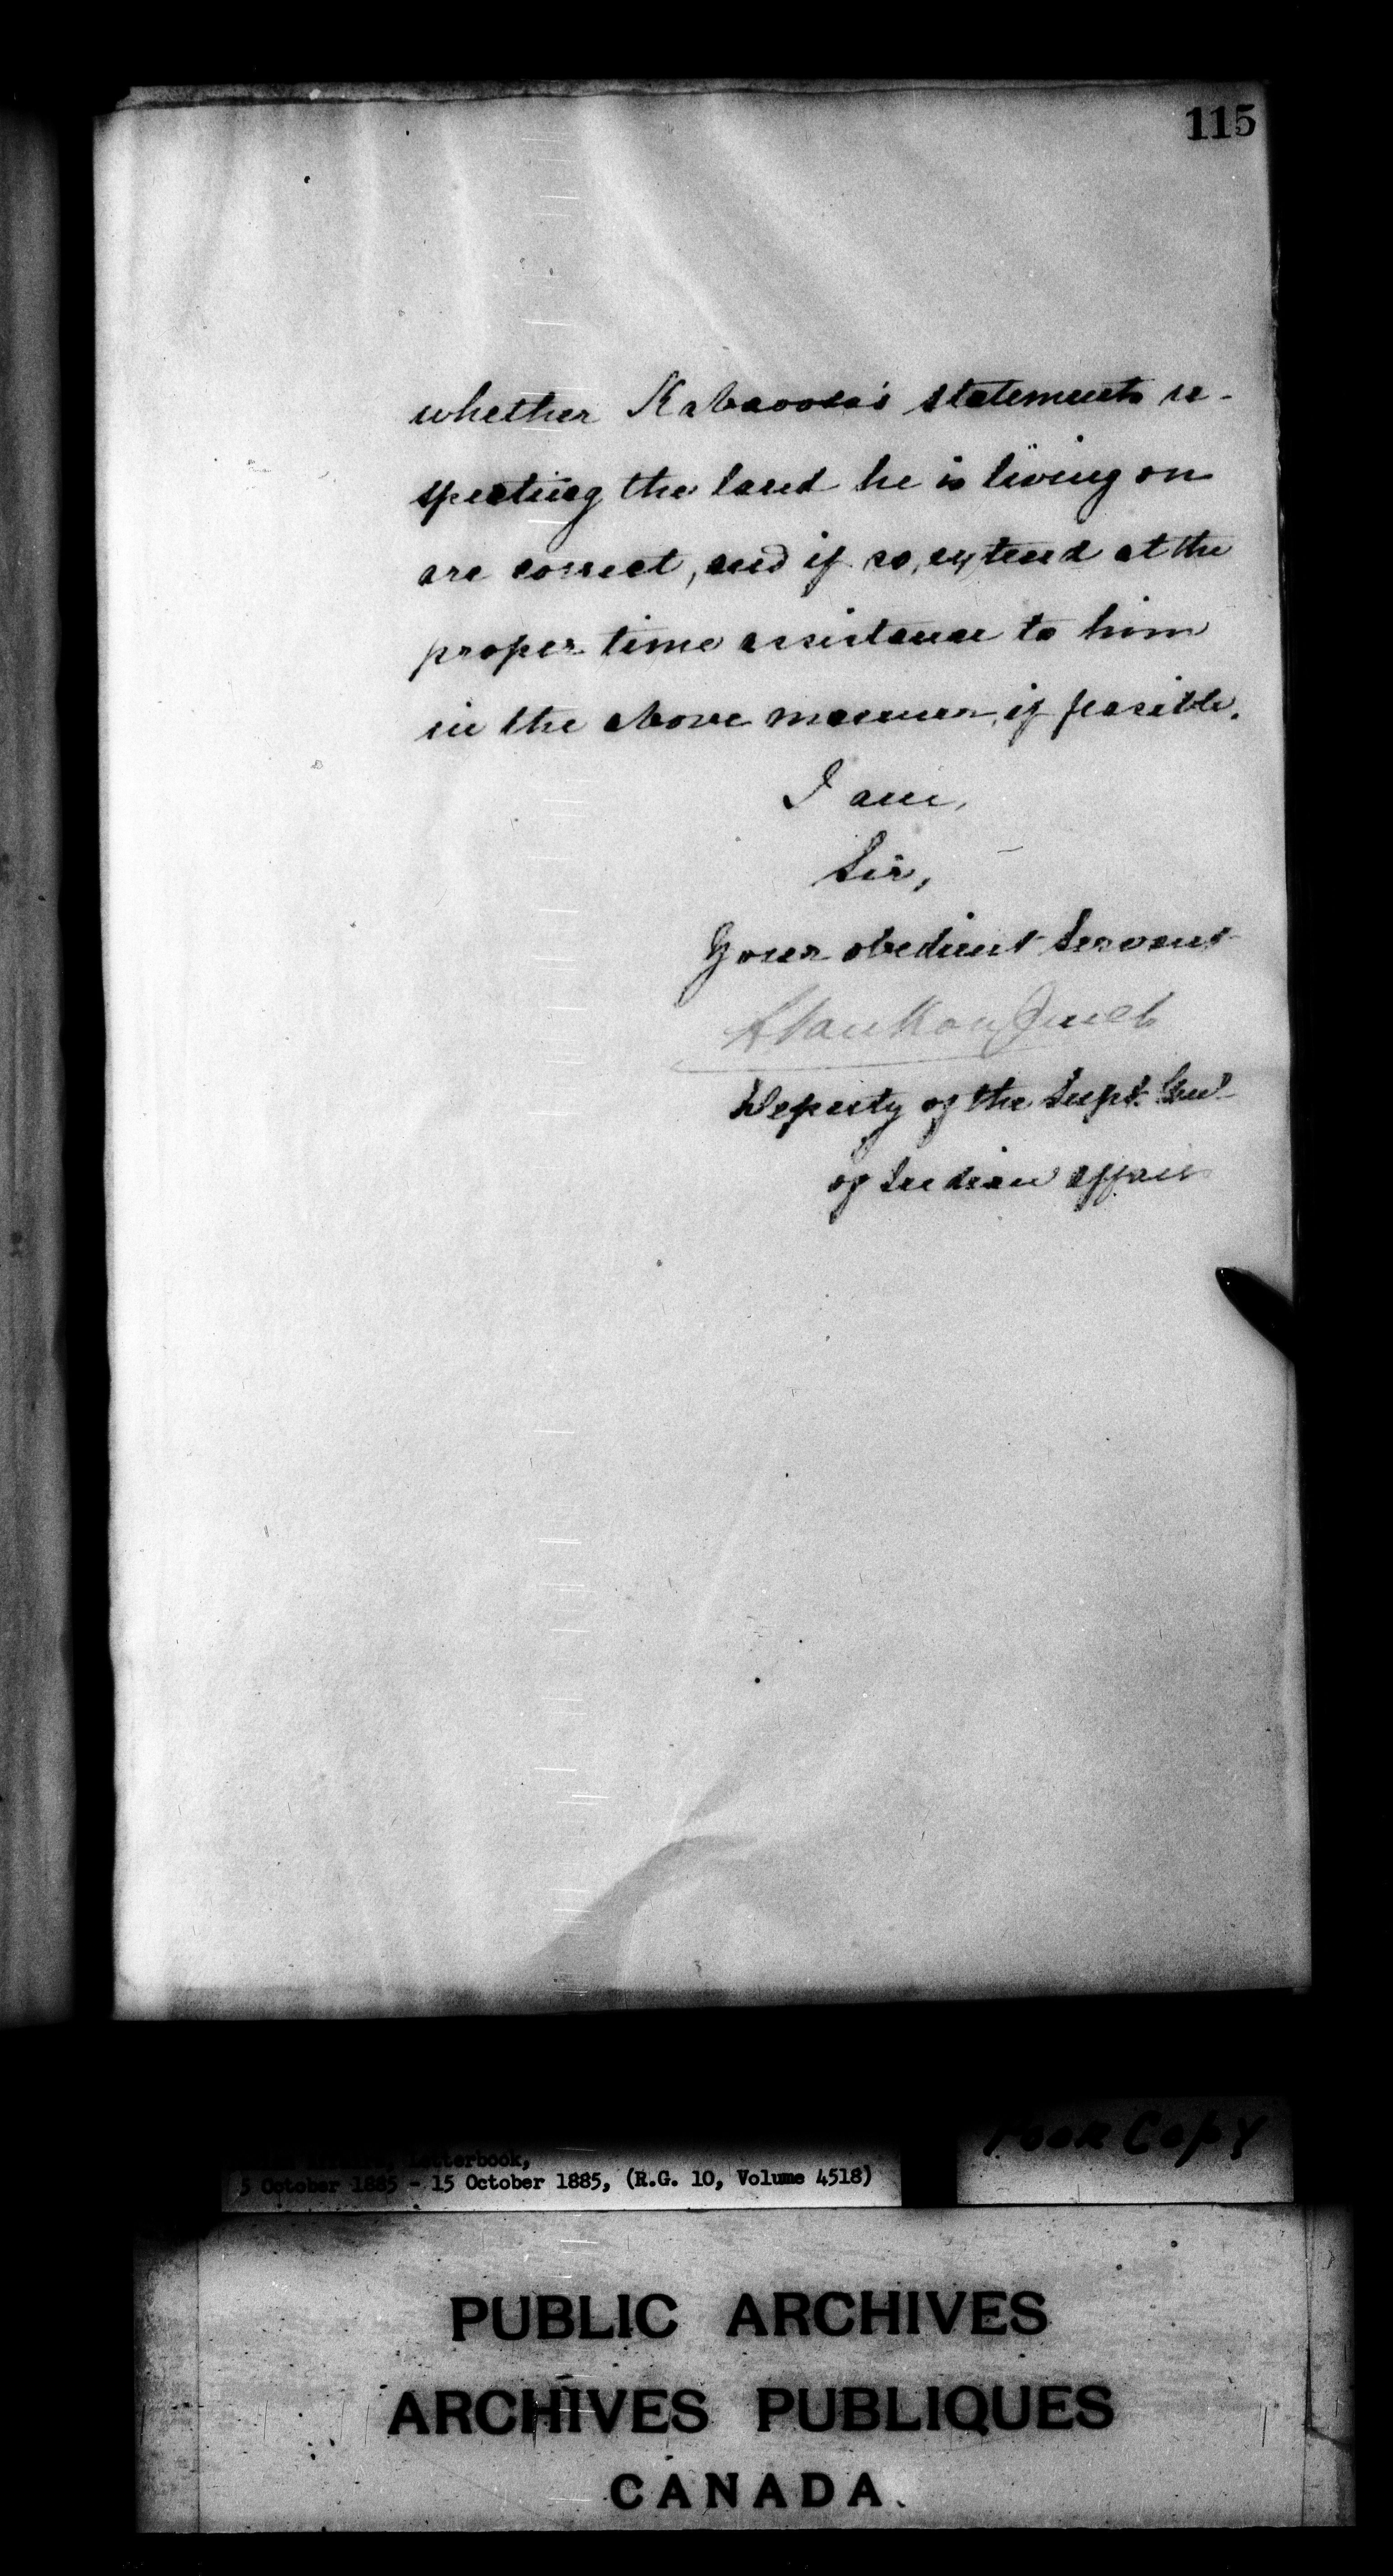 115
whether Kabaoosa's statements re-
specting the land he is living on
are correct, and if so, extend at the
proper time assistance to him
in the above manner, if feasible.
I am,
Sir,
Your obedient Servant
L VanKoughnet
Deputy of the Supt. Genl
of Indian Affairs
Letterbook,
5 October 1885 - 15 October 1885, (R.G. 10, Volume 4518)
Poor Copy
PUBLIC ARCHIVES
ARCHIVES PUBLIQUES
CANADA